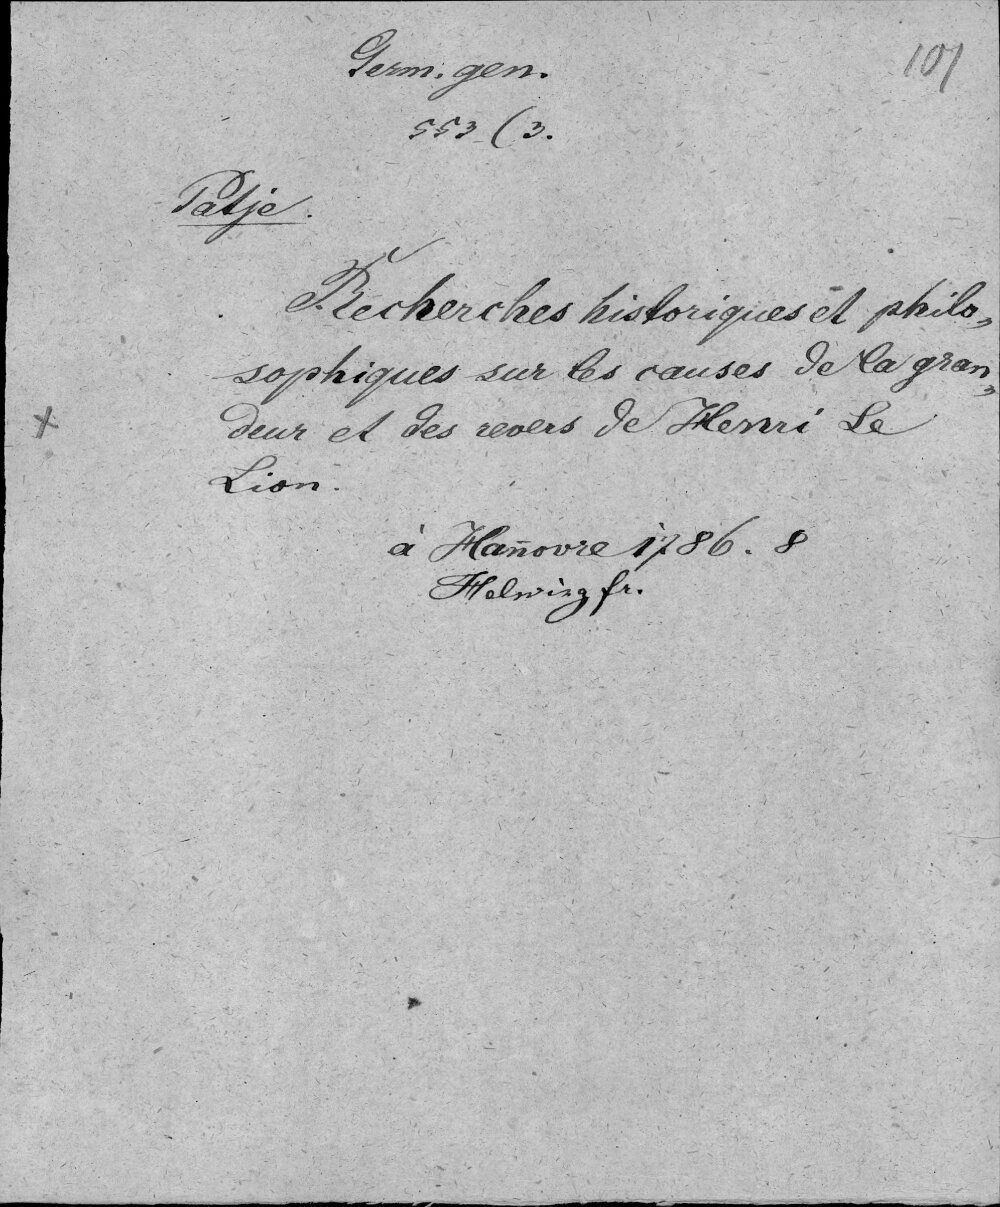 Germ. gen.
107
553 (3.
Patje.
Recherches historiques et philo-
sophiques sur les causes de la gran-
deur et des revers de Henri Le
Lion.
à Han̄ovre 1786. 8
Helwing fr.